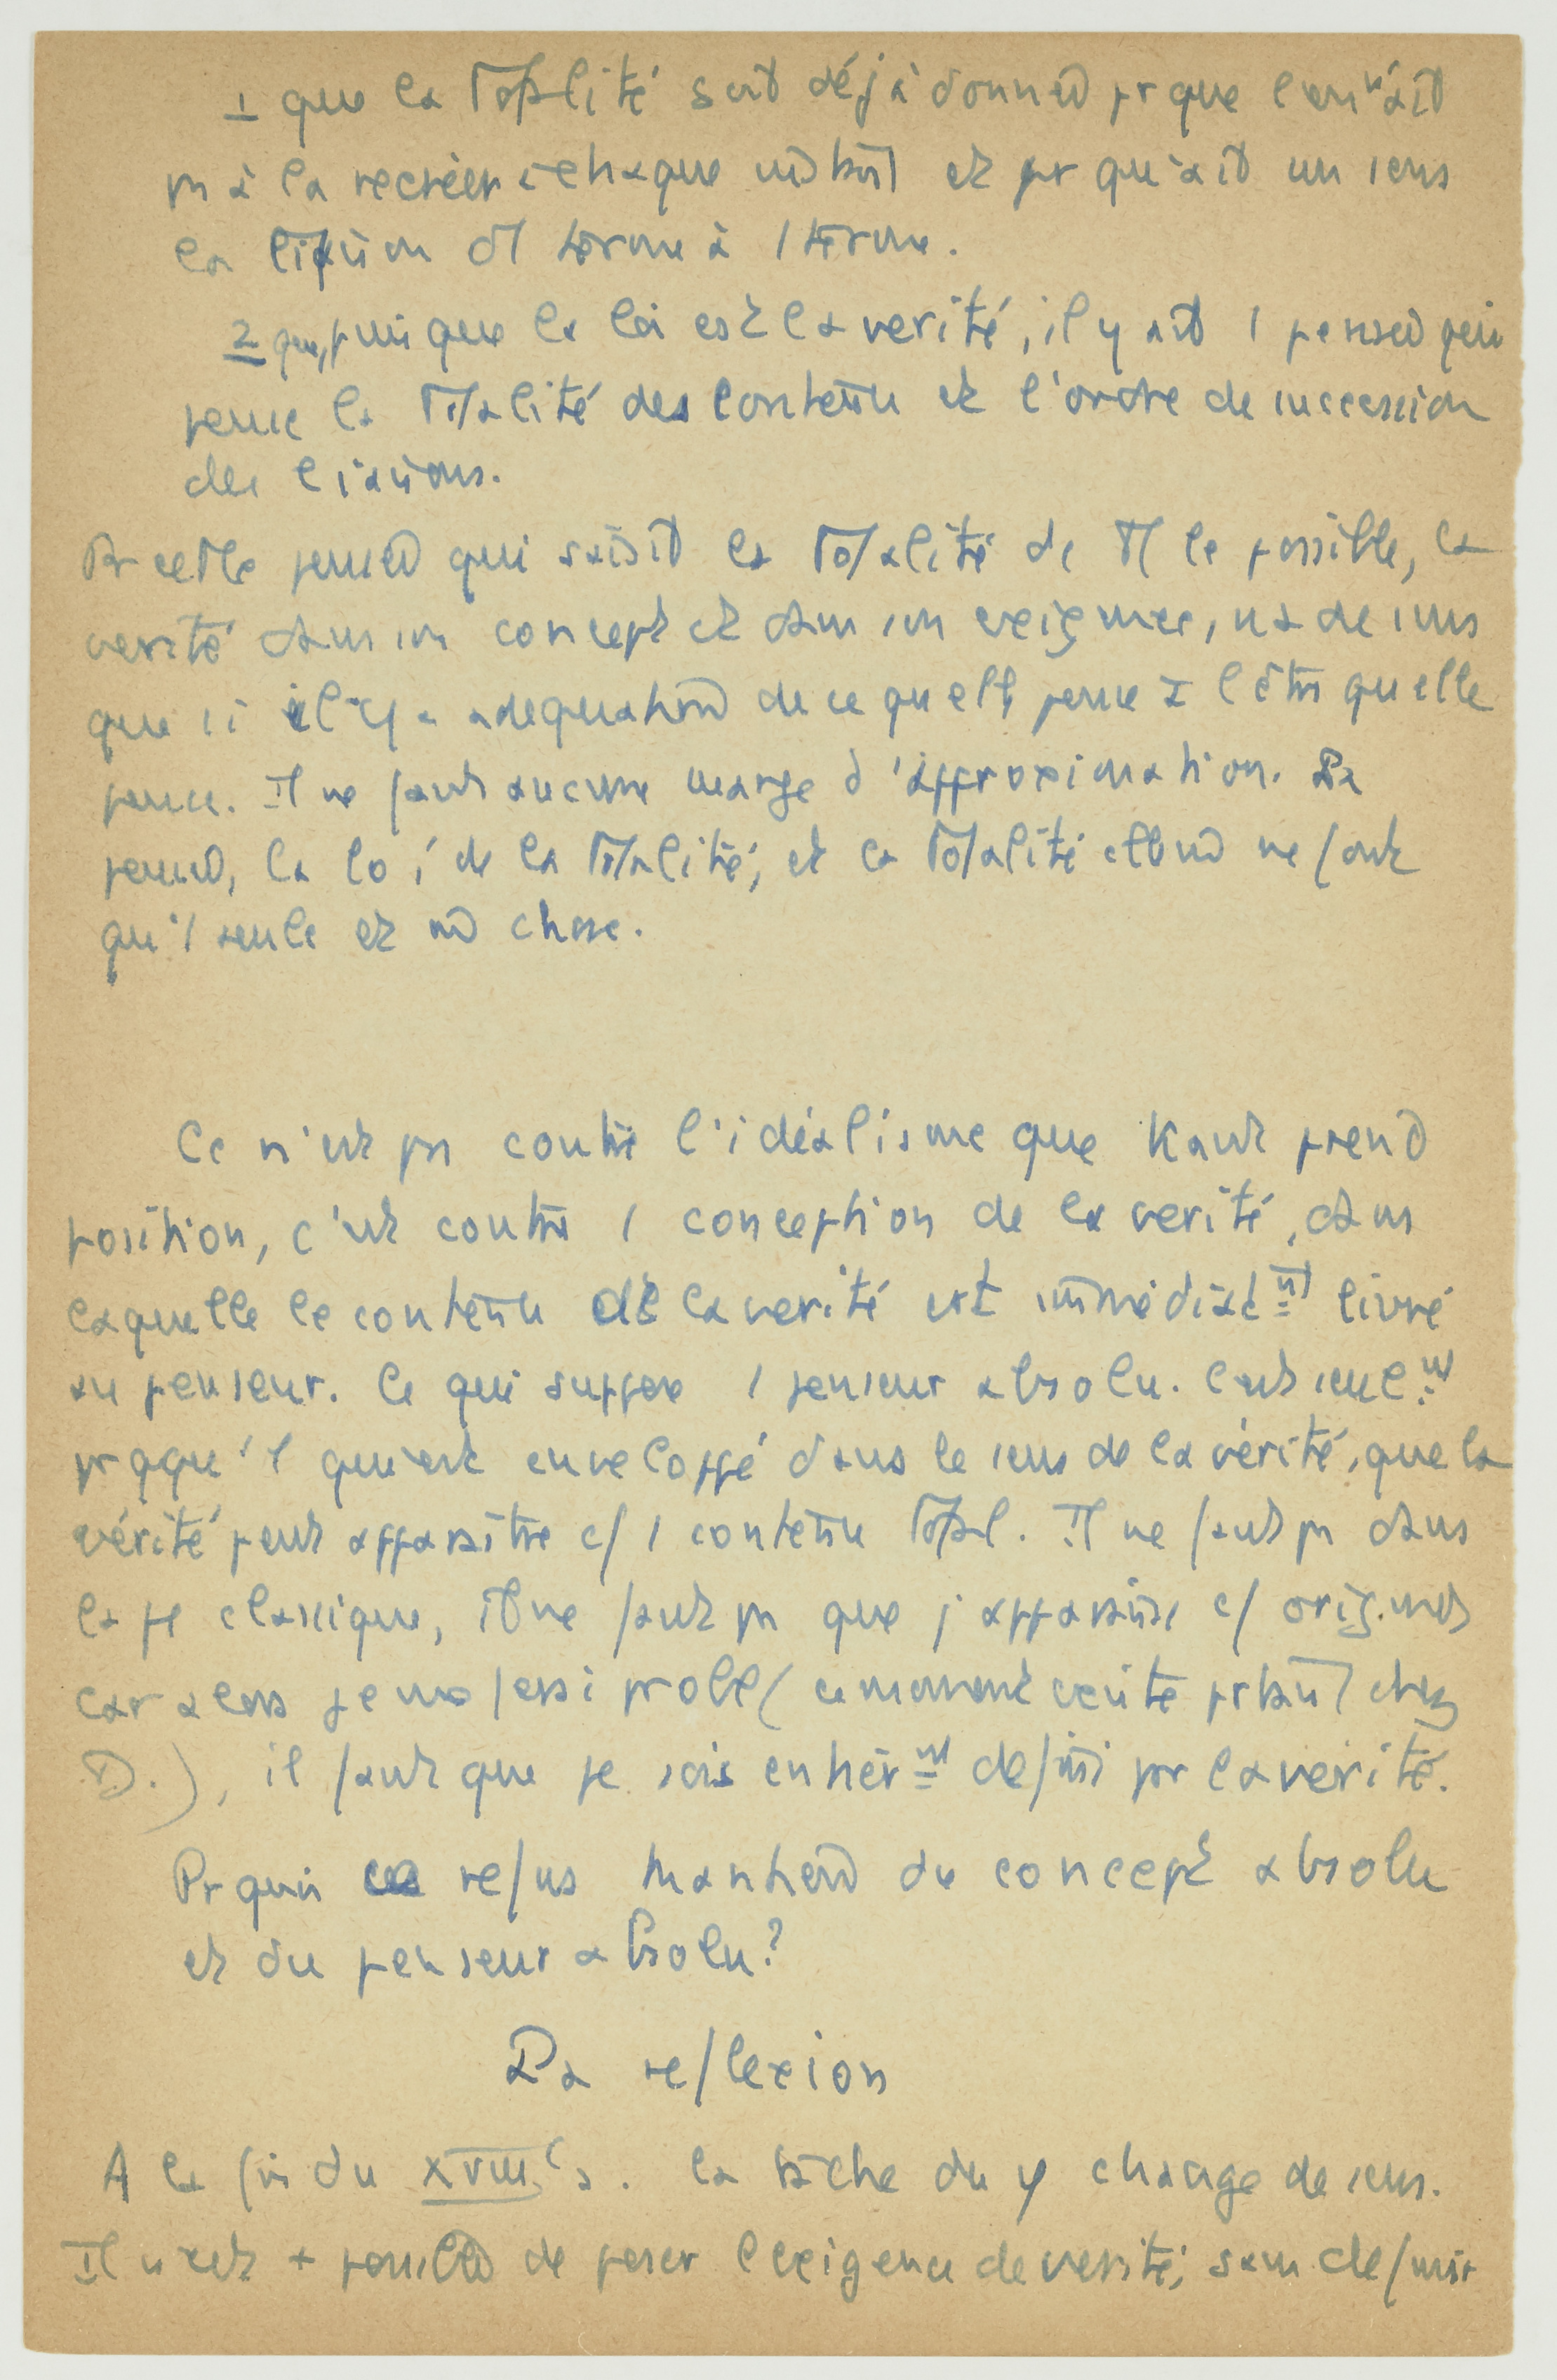 1 que la Totalité soit déjà donnée pr que l'on n'ait
pas à la recréer à chaque instant et pr qu'ait un sens
la liaison d'1 terme à 1 terme.
2 que, puisque la loi est la vérité, il y ait 1 pensée qui
pense la Totalité des contenus et l'ordre de succession
des liaisons.
Or cette pensée qui saisit la Totalité de tt le possible, la
vérité dans son concept et dans son exigence, n'a de sens
que si il y a adéquation de ce qu'elle pense à l'être qu'elle
pense. Il ne faut aucune marge d'approximation. La
pensée, la loi de la Totalité, et la Totalité elle-même ne font
qu'1 seule et même chose.
Ce n'est pas contre l'idéalisme que Kant prend
position, c'est contre 1 conception de la vérité, dans
laquelle le contenu de la vérité est immédiatemt livré
au penseur. Ce qui suppose 1 penseur absolu. C'est seulemt
pr qqu'1 qui est enveloppé dans le sens de la vérité, que la
vérité peut apparaître c/ 1 contenu Total. Il ne faut pas dans
la φ classique, il ne faut pas que j'apparaisse c/
car alors je me fais probl ( comment vérité pr tant chez
D.), il faut que je sois entièremt défini par la vérité.
Pr quoi ce refus kantien du concept absolu
et du penseur absolu?
La réflexion
A la fin du XVIIIe s. la tâche du φ change de sens.
Il n'est + possible de poser l'exigence de vérité, sans définir